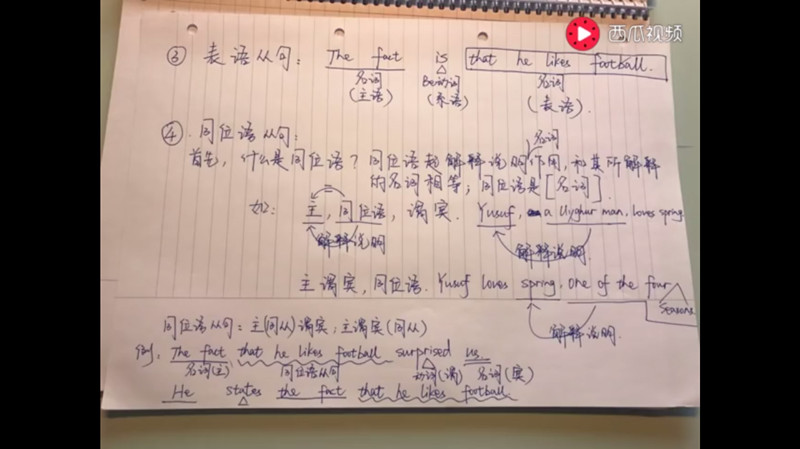 西瓜视频
③ 表语从句: The fact is that he likes football.
名词 Be动词 名词
(主语) (系语) (表语).
④. 同位语从句:
名词
首先, 什么是同位语? 同位语起解释说明作用, 和其所解释
的名词相等; 同位语是[名词].
如: 主, 同位语, 谓宾. Yusuf, a Uyghur man, loves spring.
解释说明 解释说明.
主谓宾, 同位语. Yusuf loves spring, one of the four
seasons
解释说明.
同位语从句: 主(同从)谓宾; 主谓宾(同从)
例, The fact that he likes football surprised us.
名词(主) 同位语从句 动词(谓) 名词(宾)
He states the fact that he likes football.